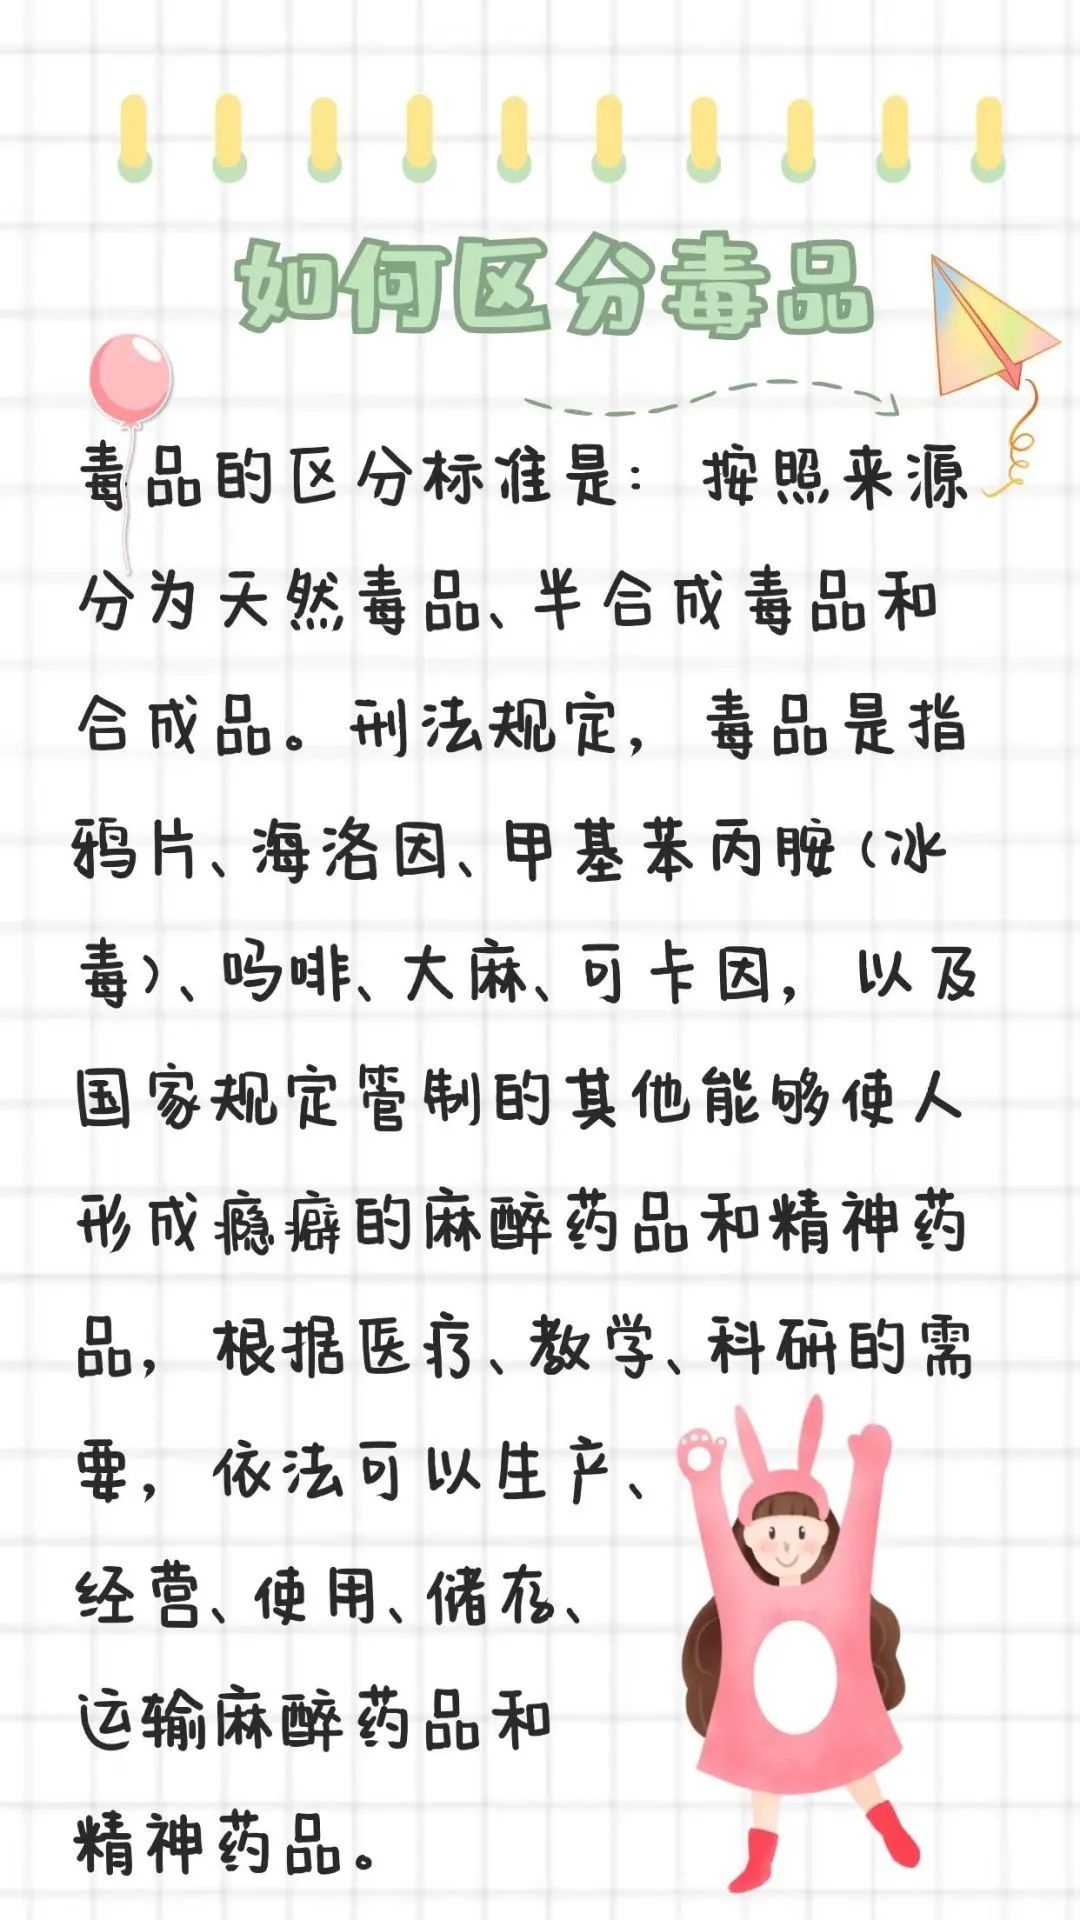 如何区分毒品
毒品的区分标准是：按照来源
分为天然毒品、半合成毒品和
合成品。刑法规定，毒品是指
鸦片、海洛因、甲基苯丙胺(冰
毒)、吗啡、大麻、可卡因，以及
国家规定管制的其他能够使人
形成瘾癖的麻醉药品和精神药
品，根据医疗、教学、科研的需
要，依法可以生产、
经营、使用、储存、
运输麻醉药品和
精神药品。